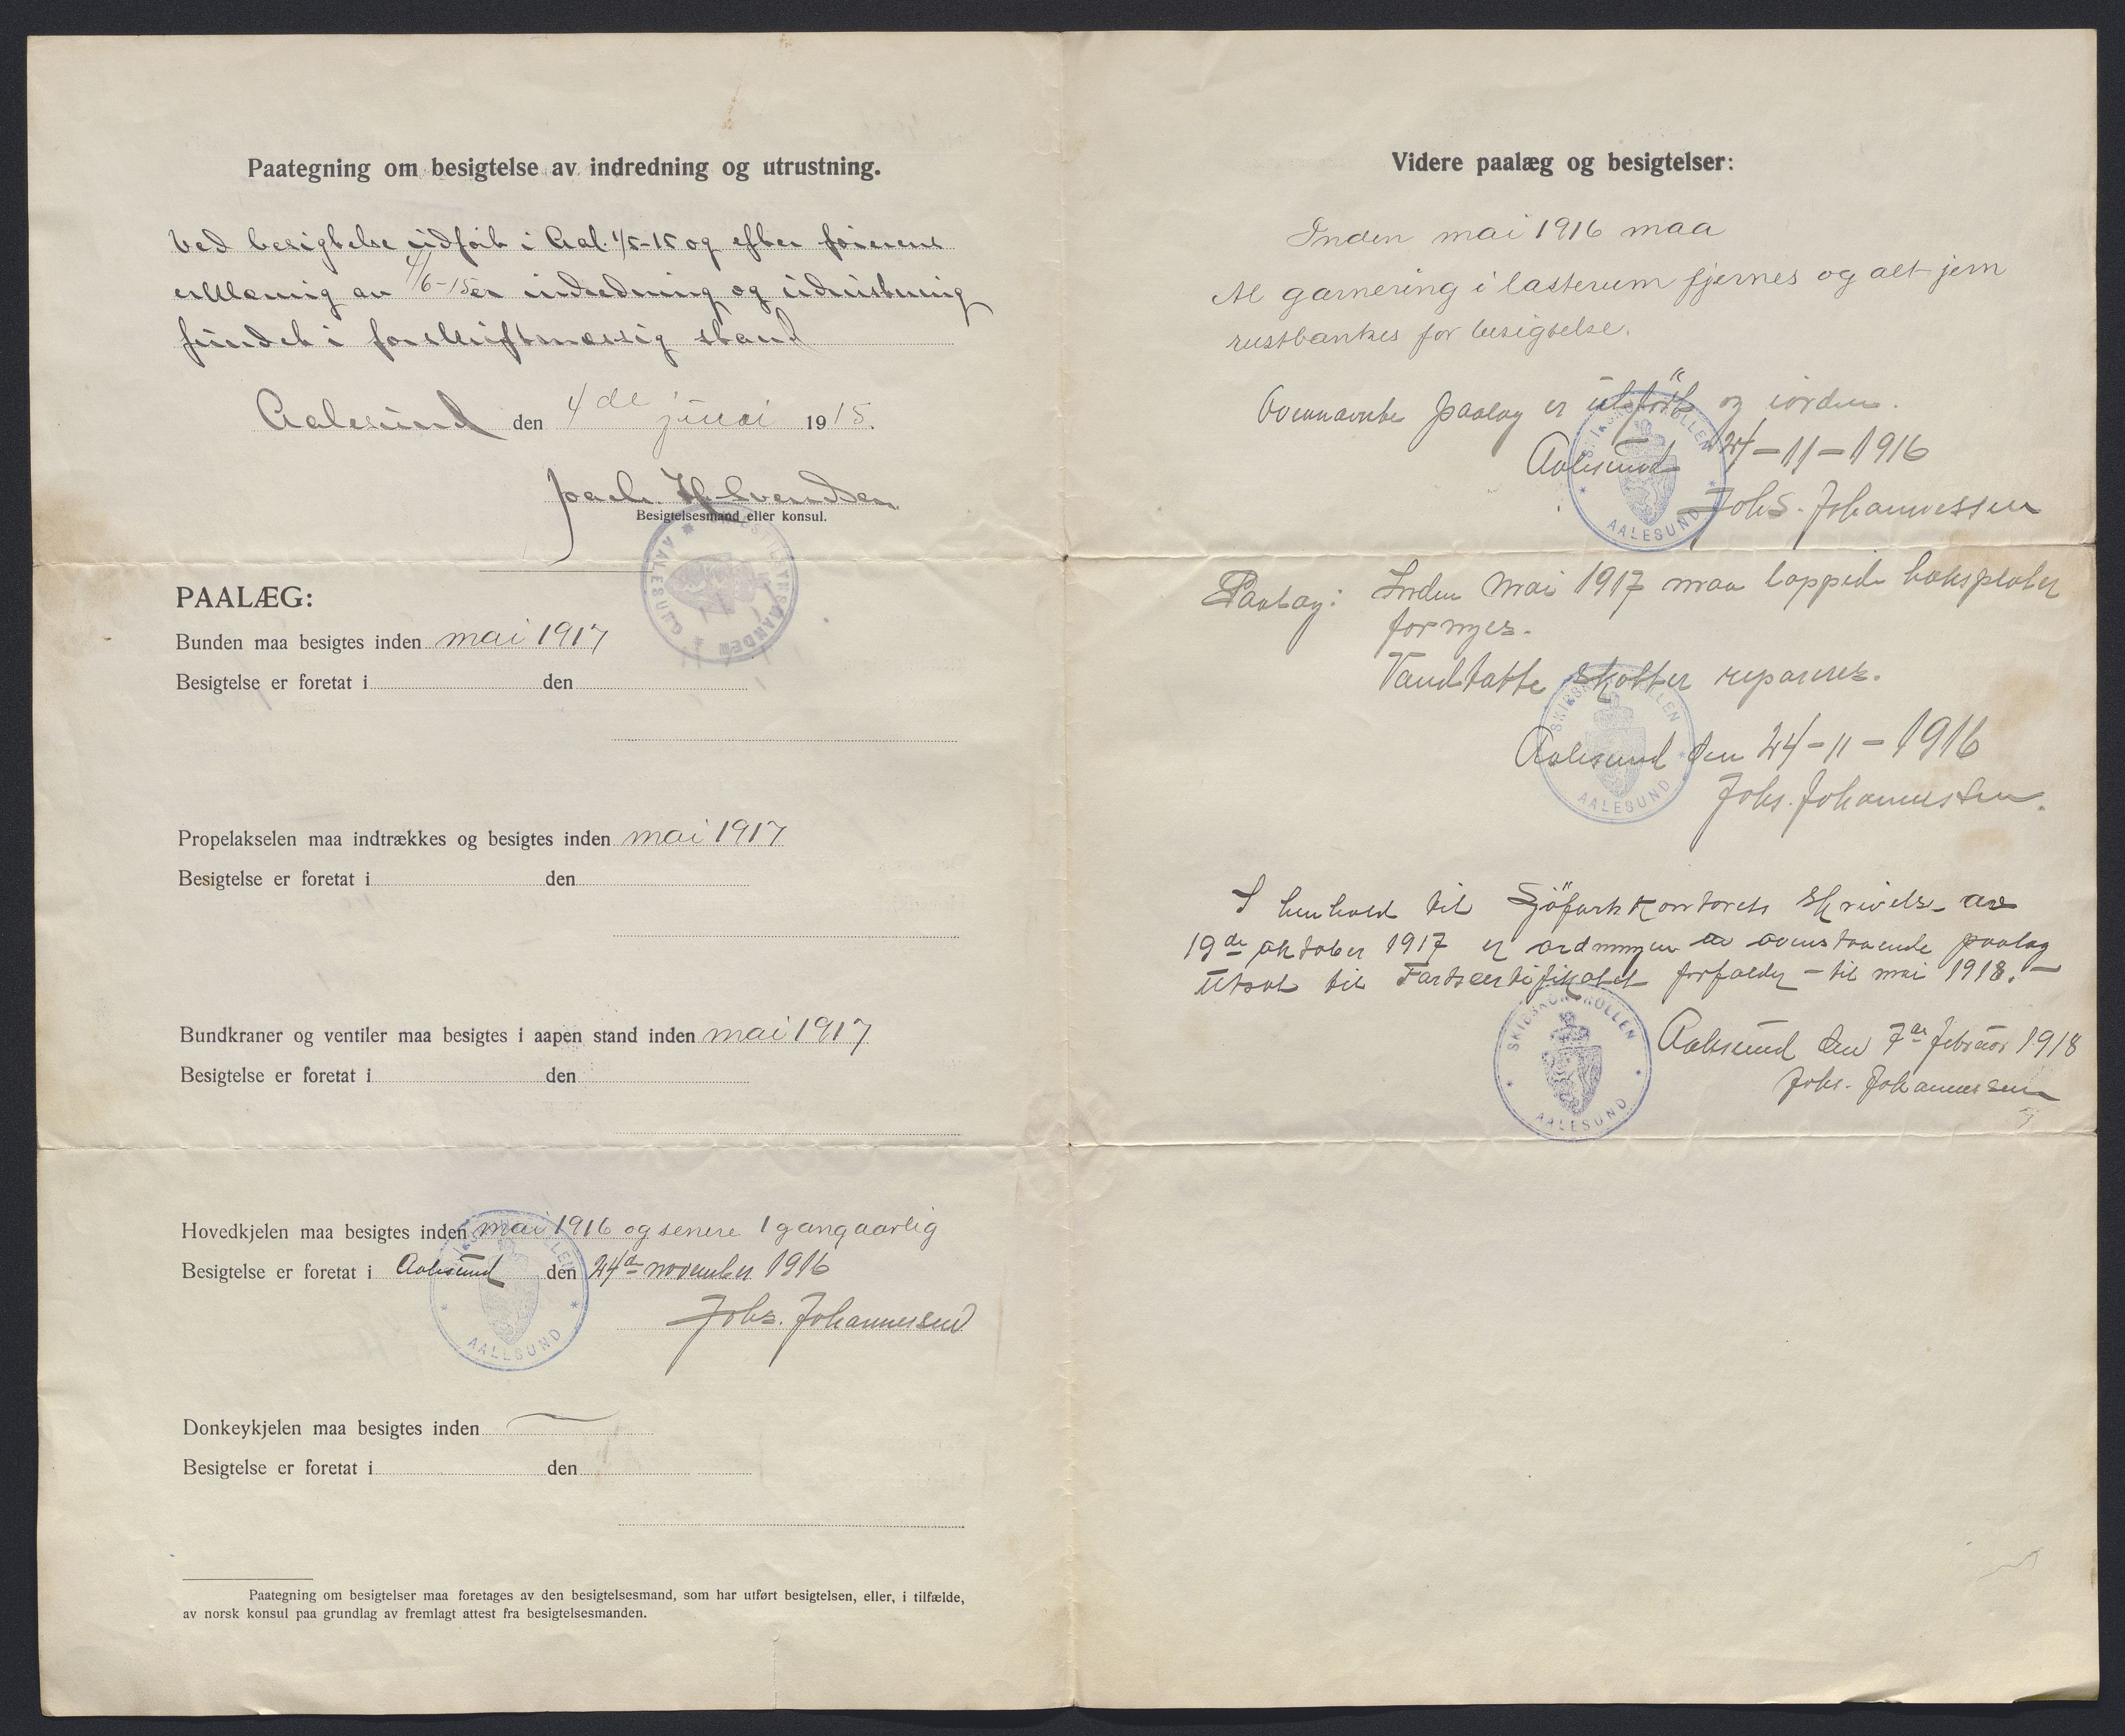 Paategning om besigtelse av indredning og utrustning.
Ved besigtelse udført i Aal. 1/5-15 og efter førerens
erklæring av 4/6-15 er indredning og udrustning
fundet i forskriftmæssig stand
Aalesund den 4de juni 1915.
Joach. H. Svendsen
Besigtelsesmand eller konsul.
AALESUND
PAALÆG:
Bunden maa besigtes inden mai 1917
Besigtelse er foretat i den
Propelakselen maa indtrækkes og besigtes inden mai 1917
Besigtelse er foretat i den
Bundkraner og ventiler maa besigtes i aapen stand inden mai 1917
Besigtelse er foretat i den
Hovedkjelen maa besigtes inden mai 1916 og senere 1 gang aarlig
Besigtelse er foretat i Aalesund den 24de november 1916
Johs. Johannessen
AALESUND
Donkeykjelen maa besigtes inden —
Besigtelse er foretat i den
Paategning om besigtelser maa foretages av den besigtelsesmand, som har utført besigtelsen, eller, i tilfælde,
av norsk konsul paa grundlag av fremlagt attest fra besigtelsesmanden.
Videre paalæg og besigtelser:
Inden mai 1916 maa
Al garnering i lasterum fjernes og alt jern
rustbankes for besigtelse.
Ovennævnte paalæg er utført og iorden.
Aalesund 24-11-1916
Johs. Johannessen
SKIBSKONTROLLEN
AALESUND
Paalæg: Inden Mai 1917 maa lappede baksplater
fornyes.
Vandtatte skotter repareres.
Aalesund den 24-11-1916
Johs. Johannessen.
SKIBSKONTROLLEN
AALESUND
I henhold til Sjöfartskontorets skrivelse av
19de oktober 1917 er ordningen av ovenstaaende paalæg
utsat til Fartscertifikatet forfalder – til mai 1918. –
Aalesund den 7de februar 1918
Johs. Johannessen
SKIBSKONTROLLEN
AALESUND